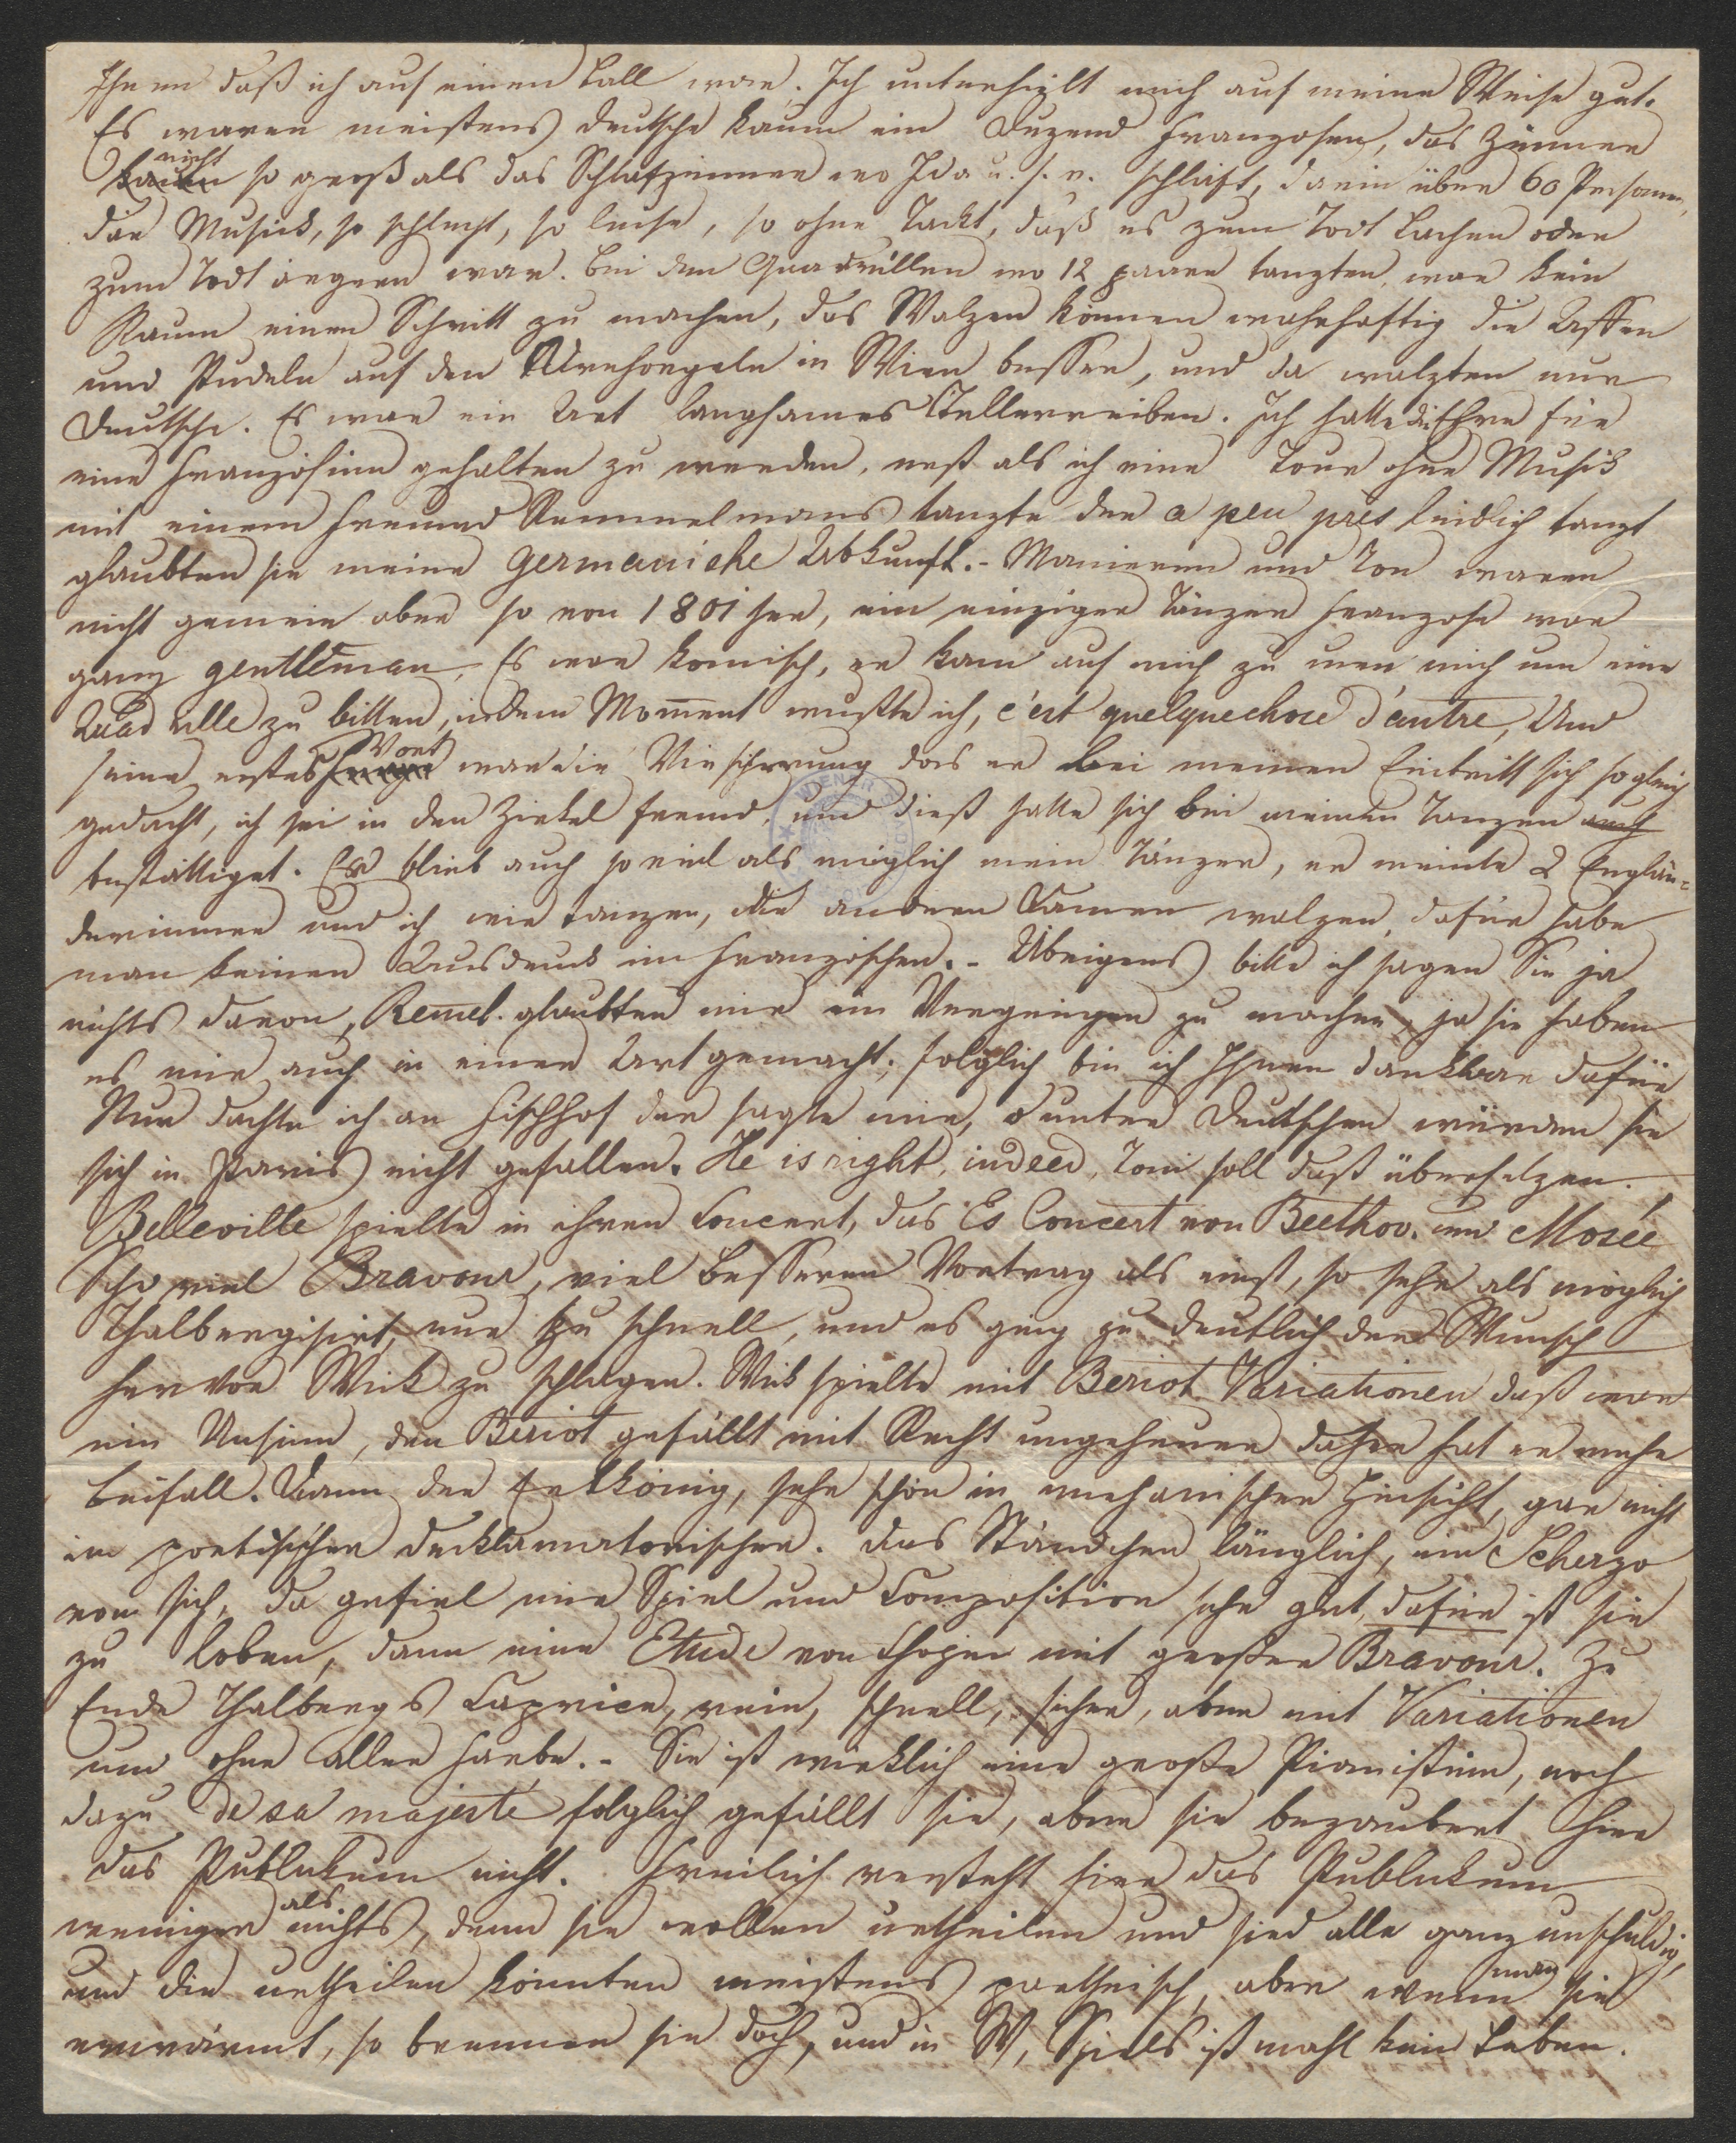 Ihnen daß ich auf einen Ball war. Ich unterhielt mich auf meine Weise gut.
Es waren meistens deutsche kaum ein Duzend Franzosen, das Zimmer
nicht so groß als das Schlafzimmer wo Ida u. s. w. schläft, darin über 60 Personen,
die Musick, so schlecht, so leise, so ohne Tackt, daß es zum Todt Lachen oder
zum Todt ärgern war. Bei den Quadrillen wo 12 paare tanzten, war kein
Raum einen Schritt zu machen, das Walzen können wahrhaftig die Affen
und Pudeln auf den Werkeln in Wien besser, und da walzten nur
Deutsche. Es war ein Art langsames Tellerreiben. Ich hatte die Ehre für
eine Französinn gehalten zu werden, erst als ich eine Tour ohne Musik
mit einem Freund Remmelmans tanzte der a peu près leidlich tanzt
glaubten sie meine germanische Abkunft. - Manieren und Ton waren
nicht gemein aber so von 1801 her, ein einziger Tänzer Franzose war
ganz gentleman, Es war komisch, er kam auf mich zu um mich um eine
Quadrille zu bitten, in dem Moment wußte ich, c'est quelquechose d'autre, Und
seine erstes Wort war die Versicherung das er bei meinen Eintritt sich sogleich
gedacht, ich sei in den Zirkel fremd, und dieß hatte sich bei meinen Tanzen auch
bestättiget. Er blieb auch so viel als möglich mein Tänzer, er meinte 2 Englän-
derinnen und ich wir tanzen, die anderen Damen walzen, dafür habe
man keinen Ausdruck im Französchen. - Übrigens bitte ich sagen Sie ja
nichts davon, Remel. glaubten mir ein Vergnügen zu machen, ja sie haben
es mir auch in einer Art gemacht; folglich bin ich Ihnen dankbar dafür
Nur dachte ich an Fischhof der sagte mir, unter Deutschen würden sie
sich in Paris nicht gefallen. He is right, indeed, Toni soll daß übersetzen.
Belleville spielte in ihren Concert, das Es Concert von Beethov. und Mosée
Sehr viel Bravour, viel besseren Vortrag als einst, so sehr als möglich
Thalbergisirt, nur zu schnell, und es ging zu deutlich der Wunsch
hervor Wiek zu schlagen. Wiek spielte mit Beriot Variationen daß war
ein Unsinn, den Beriot gefällt mit Recht ungeheuer daher hat er mehr
Beifall. Dann der Erlkönig, sehr schön in mechanischer Hinsicht, gar nicht
in poetischer decklamatorischer. Das Ständchen länglich, ein Scherzo
von sich, da gefiel mir Spiel und Composition sehr gut, dafür ist sie
zu loben, dann eine Etude von Chopin mit großer Bravour. Zu
Ende Thalbergs Caprice, rein, schnell, sicher, aber mit Variationen
und ohne aller Farbe. - Sie ist wirklich eine große Pianistinn, noch
dazu de sa majesté folglich gefällt sie, aber sie bezaubert hier
das Publukum nicht. Freilich versteht hier das Publukum
weniger als nichts, denn sie wollen urtheilen und sind alle ganz unschuldig,
und die urtheilen könnten meistens partheisch, aber wenn man sie
erwärmt, so brennen sie doch, und in W, Spiels ist mahl kein Leben.